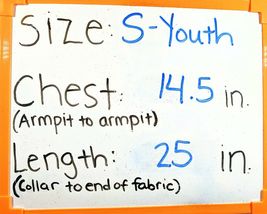 Size: S-Youth
Chest: 14.5 in.
(Armpit to armpit)
Length: 25 in.
(Collar to end of fabric)